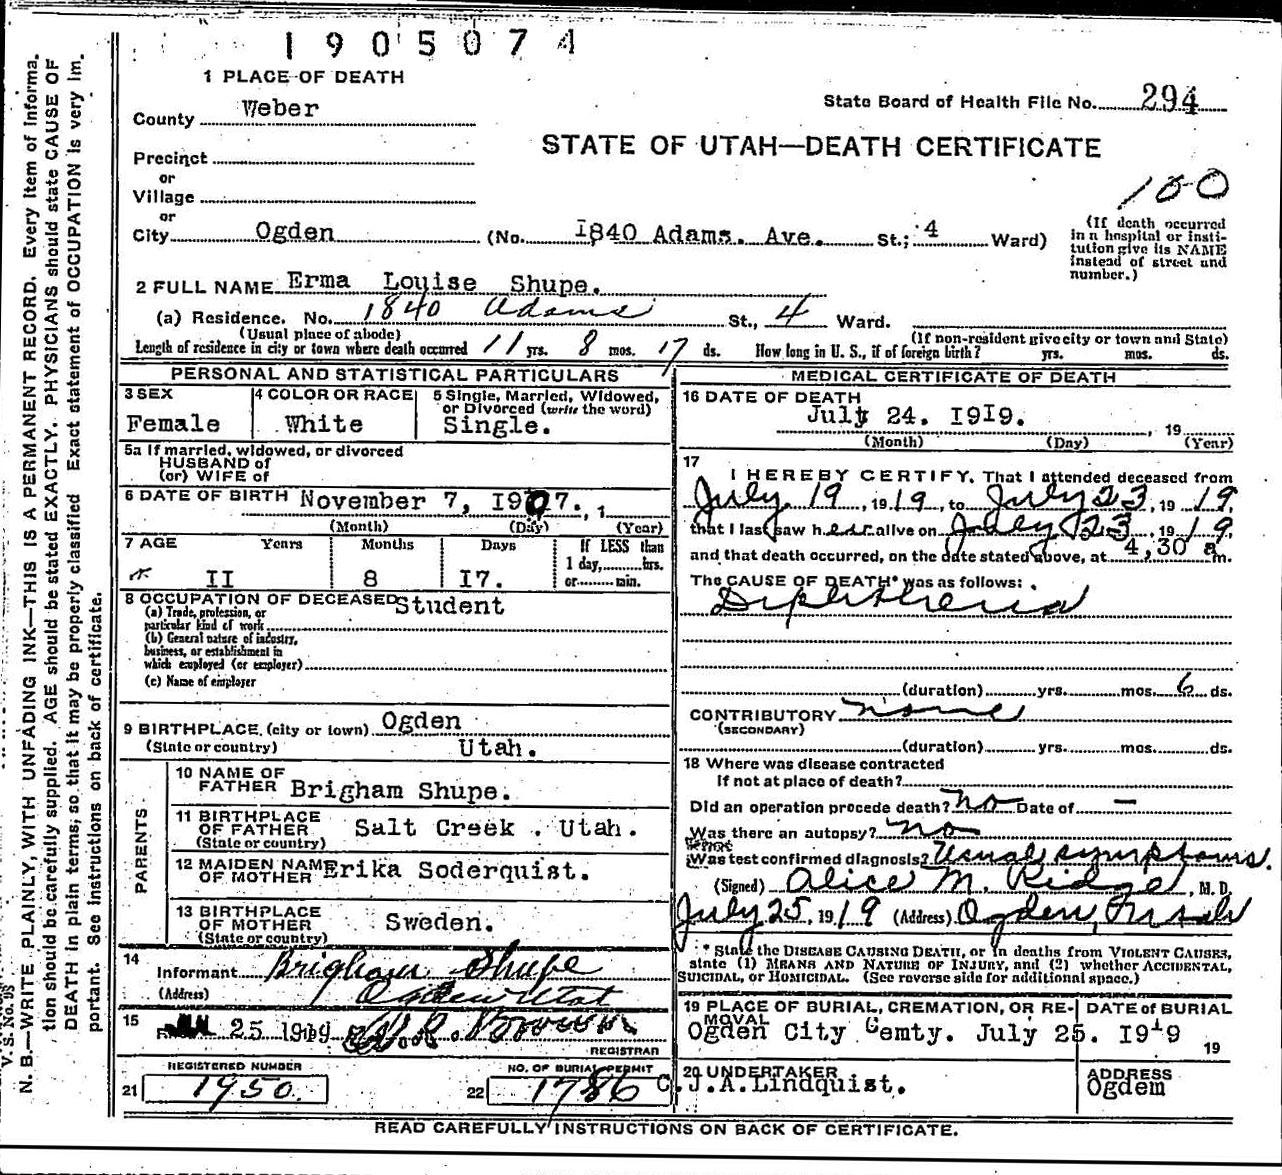 1905074
1 PLACE OF DEATH
State Board of Health File No. 294
County Weber
STATE OF UTAH—DEATH CERTIFICATE
Precinct
or
Village
100
or
City Ogden (No. 1840 Adams. Ave. St.; 4 Ward)
(If death occurred in a hospital or institution give its NAME instead of street and number.)
2 FULL NAME Erma Louise Shupe.
(a) Residence. No. 1840 Adams St., 4 Ward.
(Usual place of abode) (If non-resident give city or town and State)
Length of residence in city or town where death occurred 11 yrs. 8 mos. 17 ds. How long in U. S., if of foreign birth? yrs. mos. ds.
PERSONAL AND STATISTICAL PARTICULARS
3 SEX 4 COLOR OR RACE 5 Single, Married, Widowed, or Divorced (write the word)
Female White Single.
5a If married, widowed, or divorced
HUSBAND of
(or) WIFE of
6 DATE OF BIRTH November 7, I907. , 1
(Month) (Day) (Year)
7 AGE Years Months Days If LESS than
1 day, hrs.
II 8 I7. or min.
8 OCCUPATION OF DECEASED Student
(a) Trade, profession, or
particular kind of work
(b) General nature of industry,
business, or establishment in
which employed (or employer)
(c) Name of employer
9 BIRTHPLACE (city or town) Ogden
(State or country) Utah.
PARENTS
10 NAME OF
FATHER Brigham Shupe.
11 BIRTHPLACE
OF FATHER Salt Creek . Utah.
(State or country)
12 MAIDEN NAME
OF MOTHER Erika Soderquist.
13 BIRTHPLACE
OF MOTHER Sweden.
(State or country)
14
Informant Brigham Shupe
(Address) Ogden Utah
15 25 1919
REGISTRAR
REGISTERED NUMBER NO. OF BURIAL PERMIT
21 1950. 22 1786
MEDICAL CERTIFICATE OF DEATH
16 DATE OF DEATH
July 24. I9I9. , 19
(Month) (Day) (Year)
17
I HEREBY CERTIFY, That I attended deceased from
July 19, 1919, to July 23, 1919,
that I last saw her alive on July 23, 1919,
and that death occurred, on the date stated above, at 4,30 a m.
The CAUSE OF DEATH* was as follows:
Diphtheria
(duration) yrs. mos. 6 ds.
CONTRIBUTORY none
(SECONDARY)
(duration) yrs. mos. ds.
18 Where was disease contracted
If not at place of death?
Did an operation procede death? no Date of —
Was there an autopsy? no
What
Was test confirmed diagnosis? Usual symptoms.
(Signed) Alice M. Ridge, M. D.
July 25, 1919 (Address) Ogden, Utah
* State the DISEASE CAUSING DEATH, or in deaths from VIOLENT CAUSES,
state (1) MEANS AND NATURE OF INJURY, and (2) whether ACCIDENTAL,
SUICIDAL, or HOMICIDAL. (See reverse side for additional space.)
19 PLACE OF BURIAL, CREMATION, OR REMOVAL DATE OF BURIAL
Ogden City Cemty. July 25. I919 19
20 UNDERTAKER ADDRESS
C.J.A.Lindquist. Ogdem
READ CAREFULLY INSTRUCTIONS ON BACK OF CERTIFICATE.
V. S. No.
N. B.—WRITE PLAINLY, WITH UNFADING INK—THIS IS A PERMANENT RECORD. Every item of informa.
tion should be carefully supplied. AGE should be stated EXACTLY. PHYSICIANS should state CAUSE OF
DEATH in plain terms, so that it may be properly classified Exact statement of OCCUPATION is very im.
portant. See instructions on back of certificate.